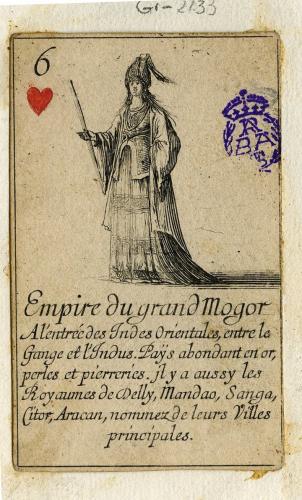 Gr-2133
6
RABASF
Empire du grand Mogor
A l'entrée des Indes Orientales, entre le
Gange et l'Indus. Paÿs abondant en or,
perles et pierreries. jl y a aussy les
Royaumes de Delly, Mandao, Sanga,
Citor, Aracan, nommez de leurs Villes
principales.